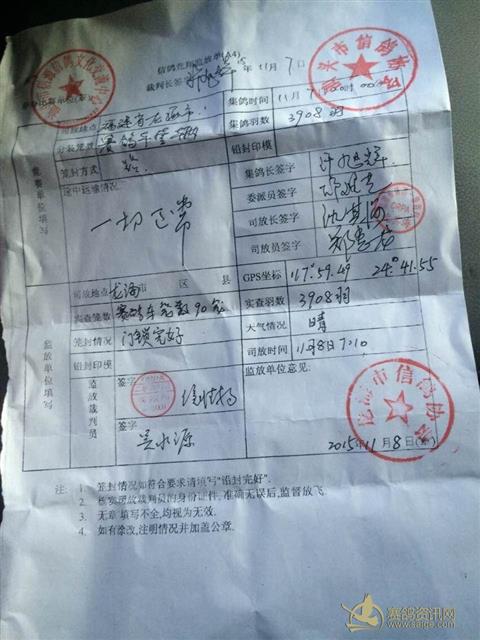 信鸽竞翔监放单(A4)
裁判长签字 年11月7日
司放地点 福建省龙海市
集鸽时间 11月7日
分装笼数 赛鸽车
集鸽羽数 3908羽
笼封方式
铅封印模
途中运输情况
一切正常
集鸽长签字
委派员签字
司放长签字
司放员签字
竞赛单位填写
司放地点 龙海市 区 县
GPS坐标 117°59.49 24°41.55
实查笼数 赛鸽车笼数90笼
实查羽数 3908羽
笼封情况 门锁完好
天气情况 晴
铅封印模
司放时间 11月8日7:10
监放单位填写
监放裁判员
签字
签字 吴水源
监放单位意见:
龙海市信鸽协会
2015年11月8日(章)
注: 1. 笼封情况如符合要求请填写"铅封完好"。
2. 核实司放裁判员的身份证件,准确无误后,监督放飞。
3. 无章填写不全,均视为无效。
4. 如有涂改,注明情况并加盖公章。
赛鸽资讯网
www.saige.com